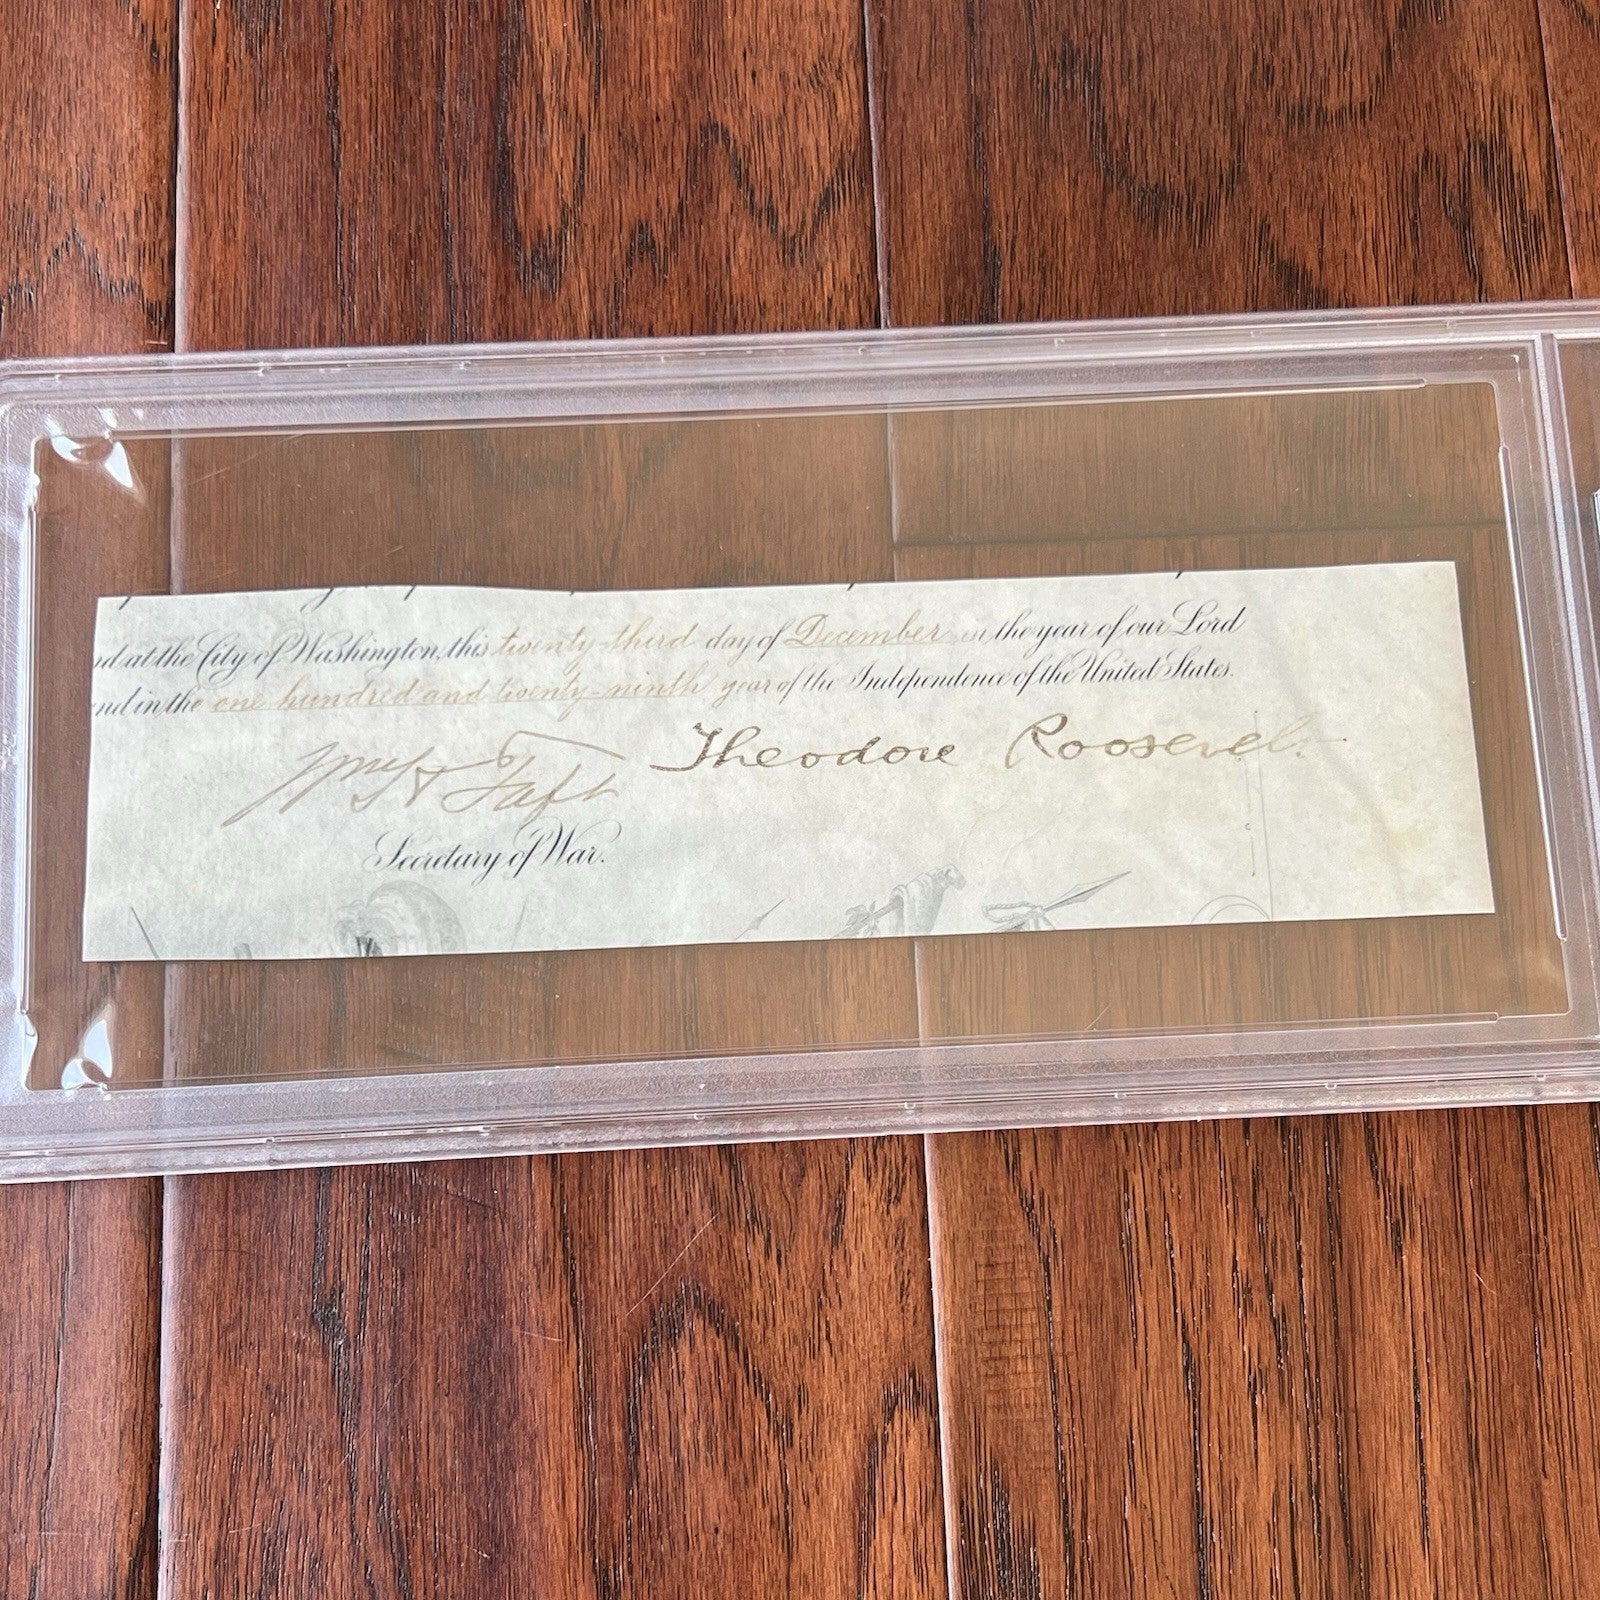 at the City of Washington, this twenty-third day of December in the year of our Lord
in the one hundred and twenty-ninth year of the Independence of the United States.
Wm H Taft Theodore Roosevelt
Secretary of War.